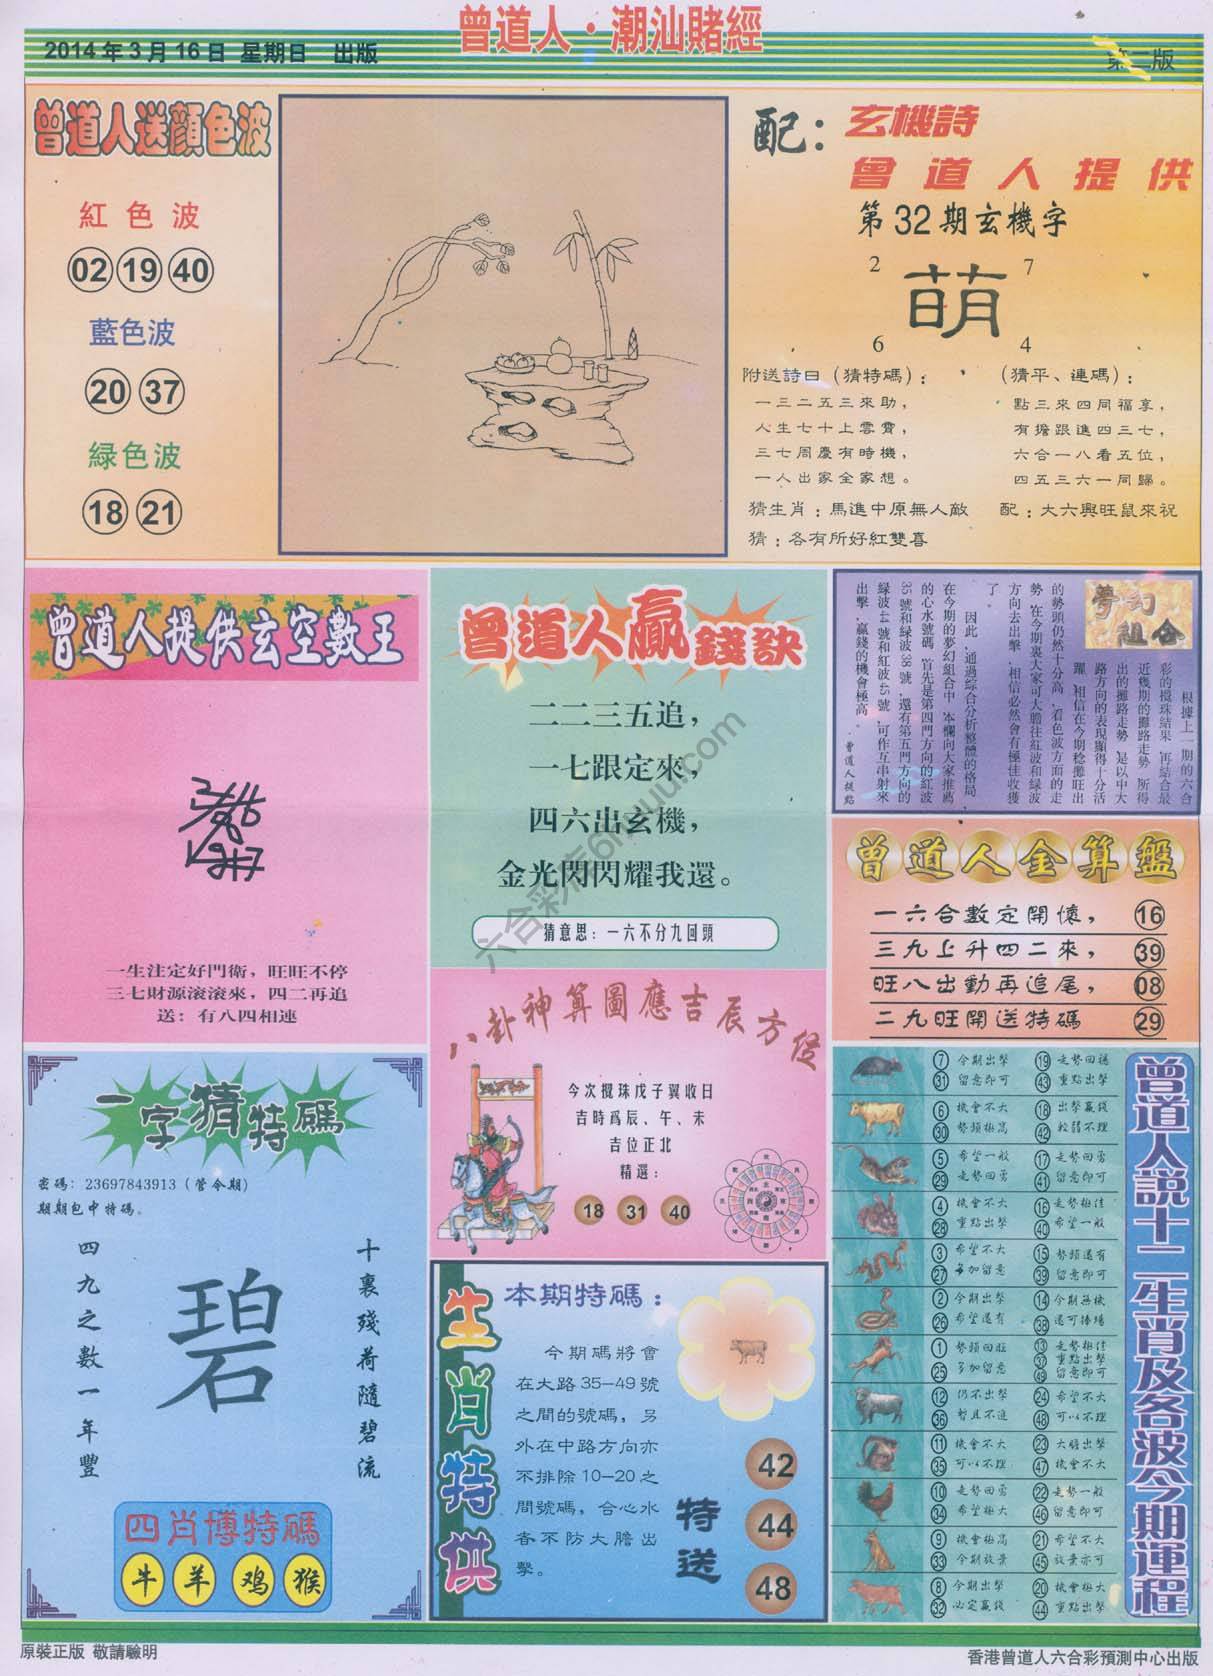 曾道人·潮汕賭經
2014年3月16日 星期日 出版
第二版
曾道人送顏色波
紅色波
02 19 40
藍色波
20 37
緑色波
18 21
配：
玄機詩
曾道人提供
第32期玄機字
2 7
萌
6 4
附送詩曰（猜特碼）：
一三二五三來助，
人生七十上雲霄，
三七周慶有時機，
一人出家全家想。
（猜平、連碼）：
點三來四同福享，
有擔跟進四三七，
六合一八看五位，
四五三六一同歸。
猜生肖：馬進中原無人敵
配：大六興旺鼠來祝
猜：各有所好紅雙喜
曾道人提供玄空數王
一生注定好門衛，旺旺不停
三七財源滚滚來，四二再追
送：有八四相連
曾道人贏錢訣
二二三五追，
一七跟定來，
四六出玄機，
金光閃閃耀我還。
猜意思：一六不分九回頭
夢幻
組合
根據上一期的六合
彩的攪珠結果，再結合最
近幾期的攤路走勢，所得
出的攤路走勢，是以中大
路方向的表現顯得十分活
躍，相信在今期稔攤旺出
的勢頭仍然十分高，看色波方面的走
勢，在今期裏大家可大膽往紅波和緑波
方向去出擊，相信必然會有極佳收獲
了。
因此，通過綜合分析整體的格局，
在今期的夢幻組合中，本欄向大家推薦
的心水號碼，首先是第四門方向的紅波
35號和緑波38號，還有第五門方向的
緑波44號和紅波45號，可作互串射來
出擊，贏錢的機會極高。
曾道人提點
曾道人金算盤
一六合數定開懷， 16
三九上升四二來， 39
旺八出動再追尾， 08
二九旺開送特碼 29
八卦神算圖應吉辰方位
今次攪珠戊子翼收日
吉時爲辰、午、未
吉位正北
精選：
18 31 40
一字猜特碼
密碼：23697843913（管令期）
期期包中特碼。
十裏殘荷隨碧流
碧
四九之數一年豐
四肖博特碼
牛 羊 鸡 猴
生肖特供
本期特碼：
今期碼將會
在大路35—49號
之間的號碼，另
外在中路方向亦
不排除10—20之
間號碼，合心水
者不防大膽出
擊。
特送
42
44
48
曾道人説十二生肖及各波今期運程
7 今期出擊 19 走勢回穩
31 留意即可 43 重點出擊
6 機會不大 18 出擊贏錢
30 勢頭極高 42 較弱不理
5 希望一般 17 走勢回勇
29 走勢回勇 41 留意即可
4 機會不大 16 走勢極佳
28 重點出擊 40 希望一般
3 希望不大 15 勢頭還有
27 多加留意 39 留意即可
2 今期出擊 14 今期無機
26 希望還有 38 還可捧場
1 勢頭回旺 13 走勢極佳
37 重點出擊
25 多加留意 49 留意即可
12 仍不出擊 24 希望不大
36 暫且不追 48 可以不理
11 機會不大 23 大膽出擊
35 可以不理 47 機會不大
10 走勢回勇 22 走勢一般
34 希望極大 46 留意即可
9 機會極高 21 希望不大
33 今期放棄 45 放棄亦可
8 今期出擊 20 機會極大
32 必定贏錢 44 重點出擊
原裝正版 敬請驗明
香港曾道人六合彩預測中心出版